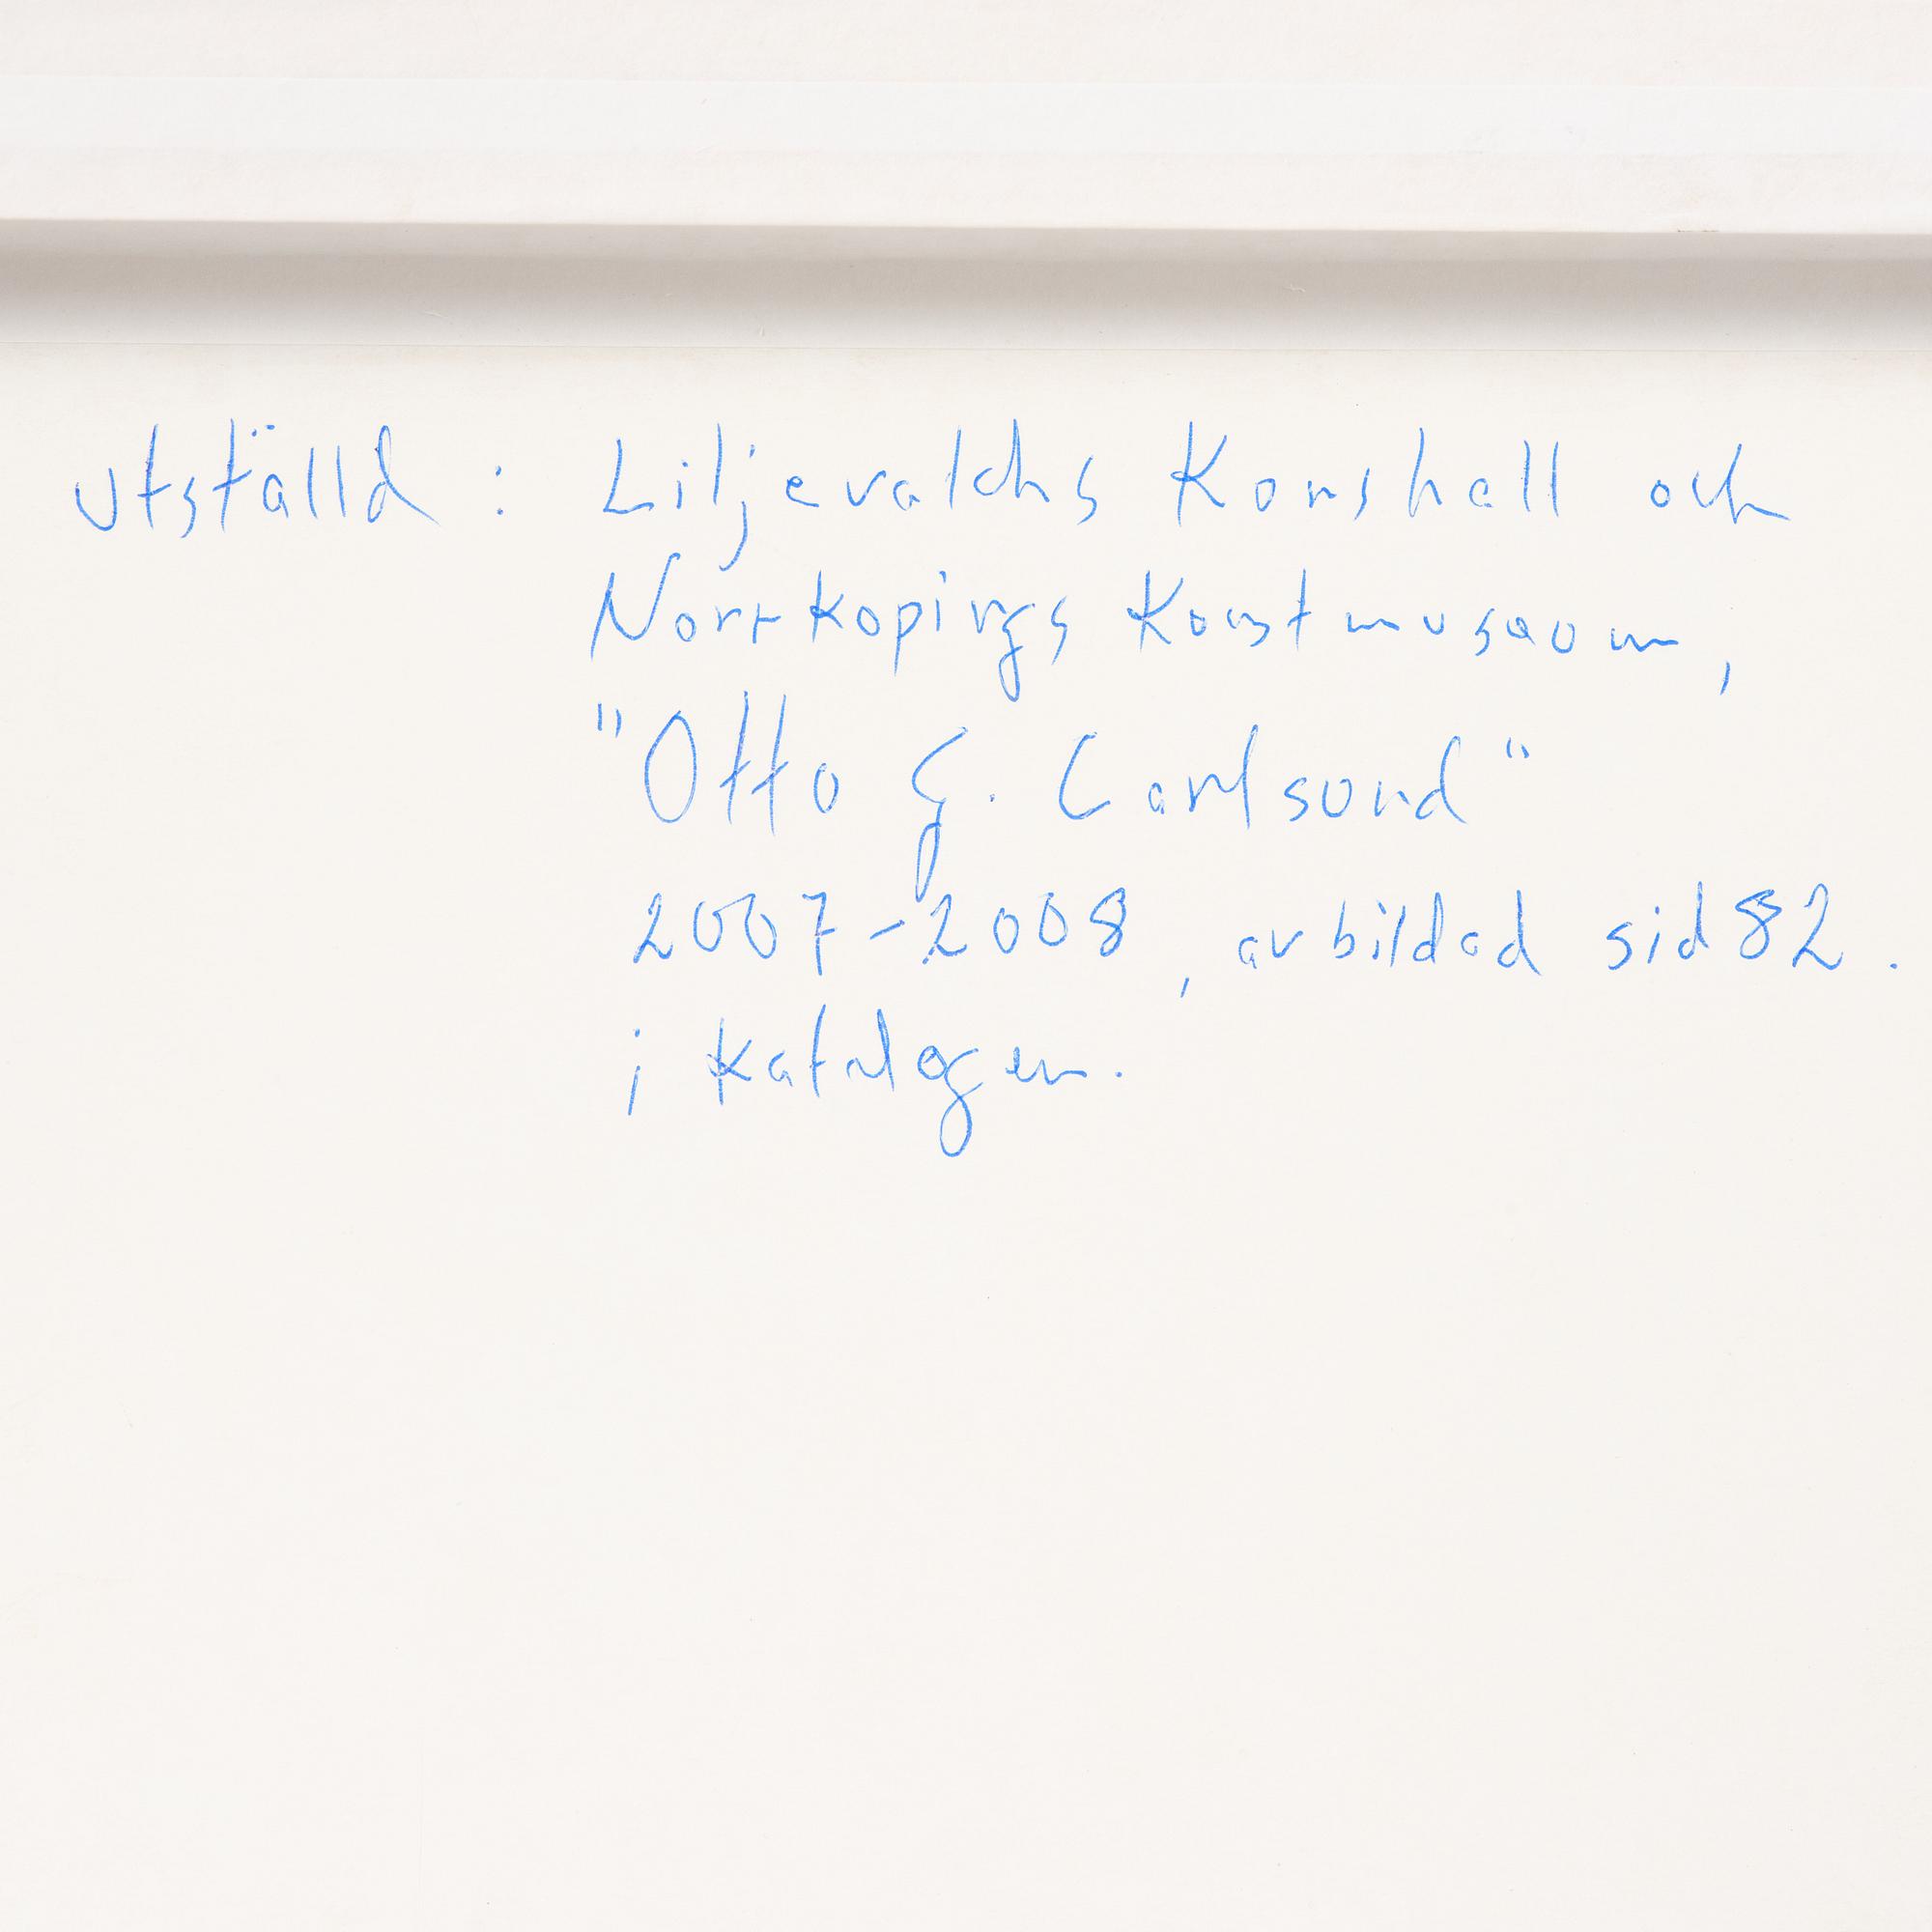 Utställd : Liljevalchs Konshall och
Norrkopings Konstmuseum,
"Otto G. Carlsund"
2007-2008, avbildad sid 82.
i katalogen.